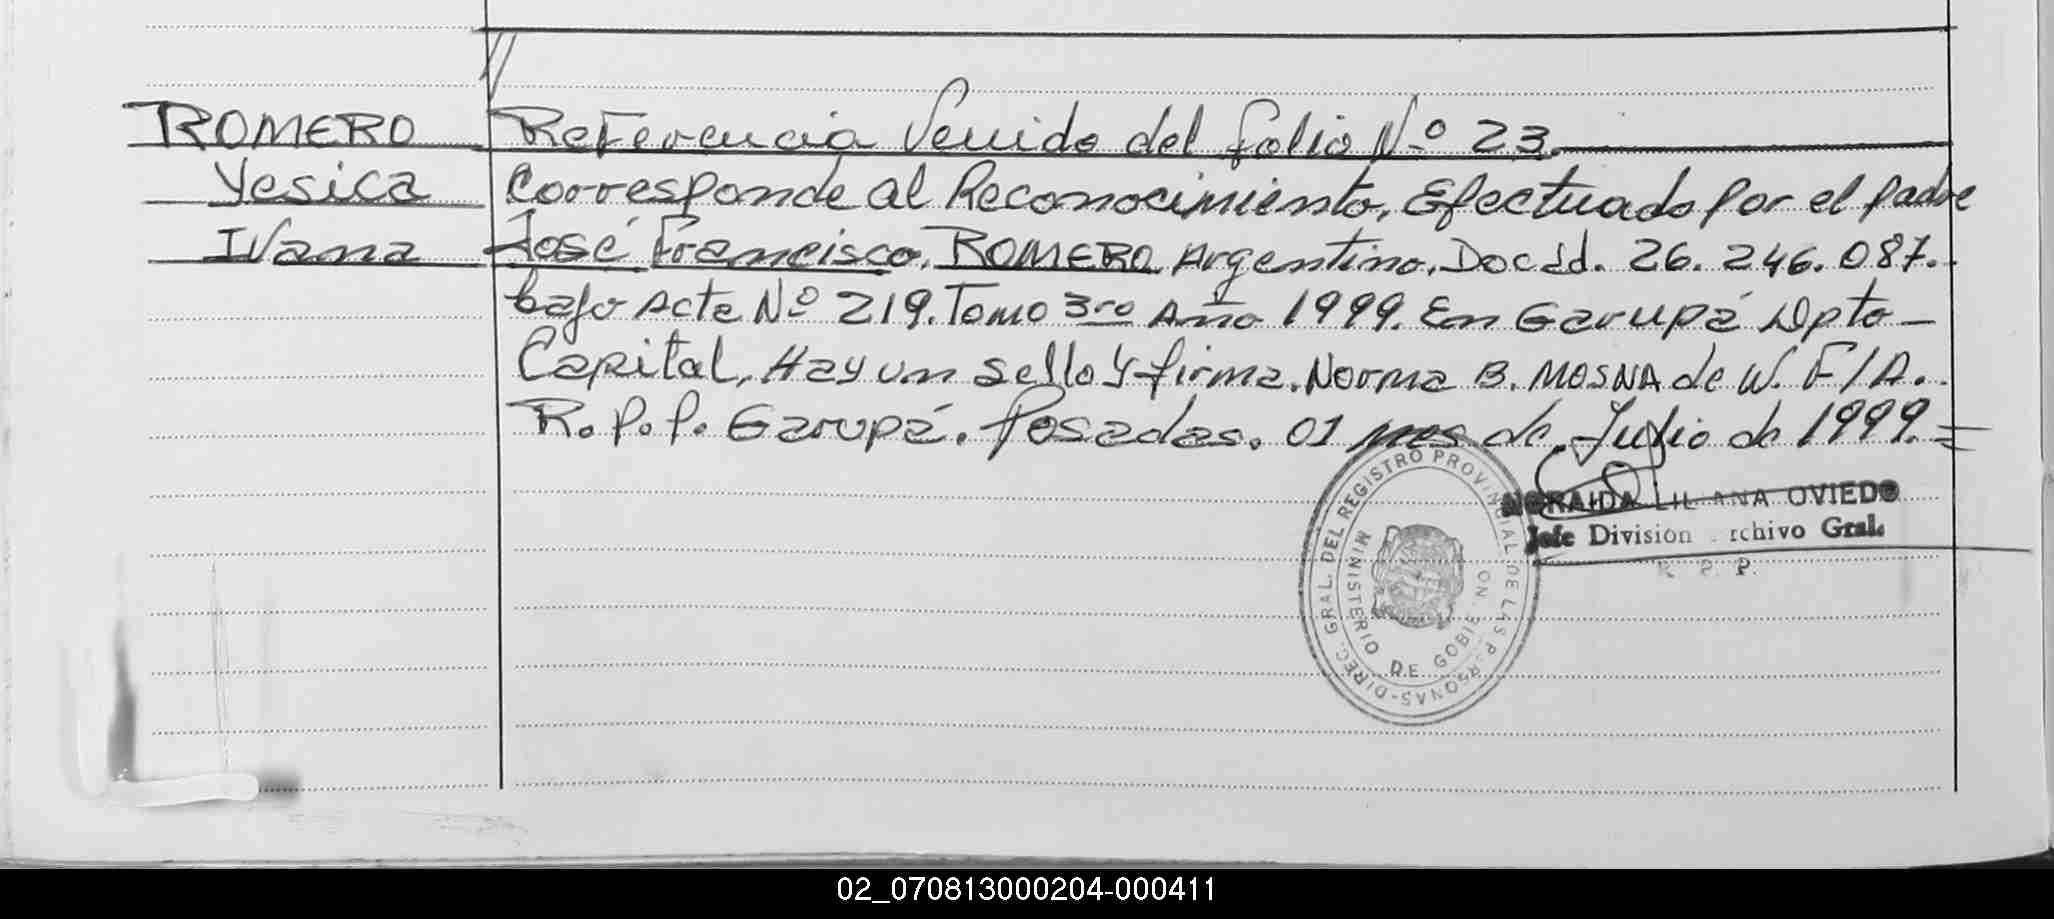 ROMERO Referencia Venido del folio Nº 23.
Yesica Corresponde al Reconocimiento, Efectuado por el padre
Ivana José Francisco, ROMERO, Argentino, Doc Id. 26.246.087.
bajo Acta Nº 219. Tomo 3ro Año 1999. En Garupá Dpto
Capital, Hay un sello y firma. Norma B. MOSNA de W. F/A.
R.P.P. Garupá. Posadas. 01 mes de Julio de 1999.=
NORAIDA LILIANA OVIEDO
Jefe División Archivo Gral.
R. P. P.
DIREC. GRAL. DEL REGISTRO PROVINCIAL DE LAS PERSONAS-
MINISTERIO DE GOBIERNO
02_070813000204-000411